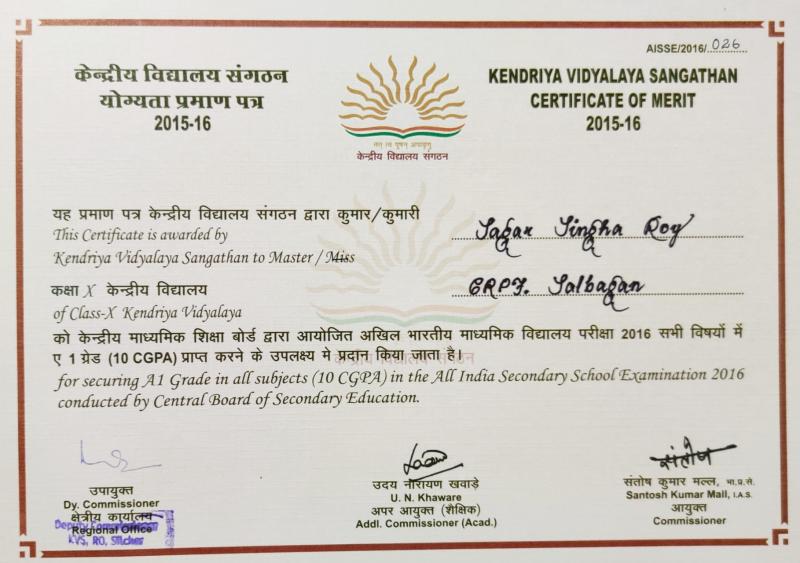 AISSE/2016/ 026
केन्द्रीय विद्यालय संगठन
योग्यता प्रमाण पत्र
2015-16
तत् त्वं पूषन् अपावृणु
केन्द्रीय विद्यालय संगठन
KENDRIYA VIDYALAYA SANGATHAN
CERTIFICATE OF MERIT
2015-16
यह प्रमाण पत्र केन्द्रीय विद्यालय संगठन द्वारा कुमार/कुमारी
This Certificate is awarded by
Kendriya Vidyalaya Sangathan to Master / Miss
Sagar Singha Roy
कक्षा X केन्द्रीय विद्यालय
of Class-X Kendriya Vidyalaya
CRPF. Salbagan
को केन्द्रीय माध्यमिक शिक्षा बोर्ड द्वारा आयोजित अखिल भारतीय माध्यमिक विद्यालय परीक्षा 2016 सभी विषयों में
ए 1 ग्रेड (10 CGPA) प्राप्त करने के उपलक्ष्य मे प्रदान किया जाता है।
केन्द्रीय विद्यालय संगठन
for securing A1 Grade in all subjects (10 CGPA) in the All India Secondary School Examination 2016
conducted by Central Board of Secondary Education.
उपायुक्त
Dy. Commissioner
क्षेत्रीय कार्यालय
Regional Office
Deputy Commissioner
KVS, RO, Silchar
उदय नारायण खवाड़े
U. N. Khaware
अपर आयुक्त (शैक्षिक)
Addl. Commissioner (Acad.)
संतोष
संतोष कुमार मल्ल, भा.प्र.से.
Santosh Kumar Mall, I.A.S.
आयुक्त
Commissioner